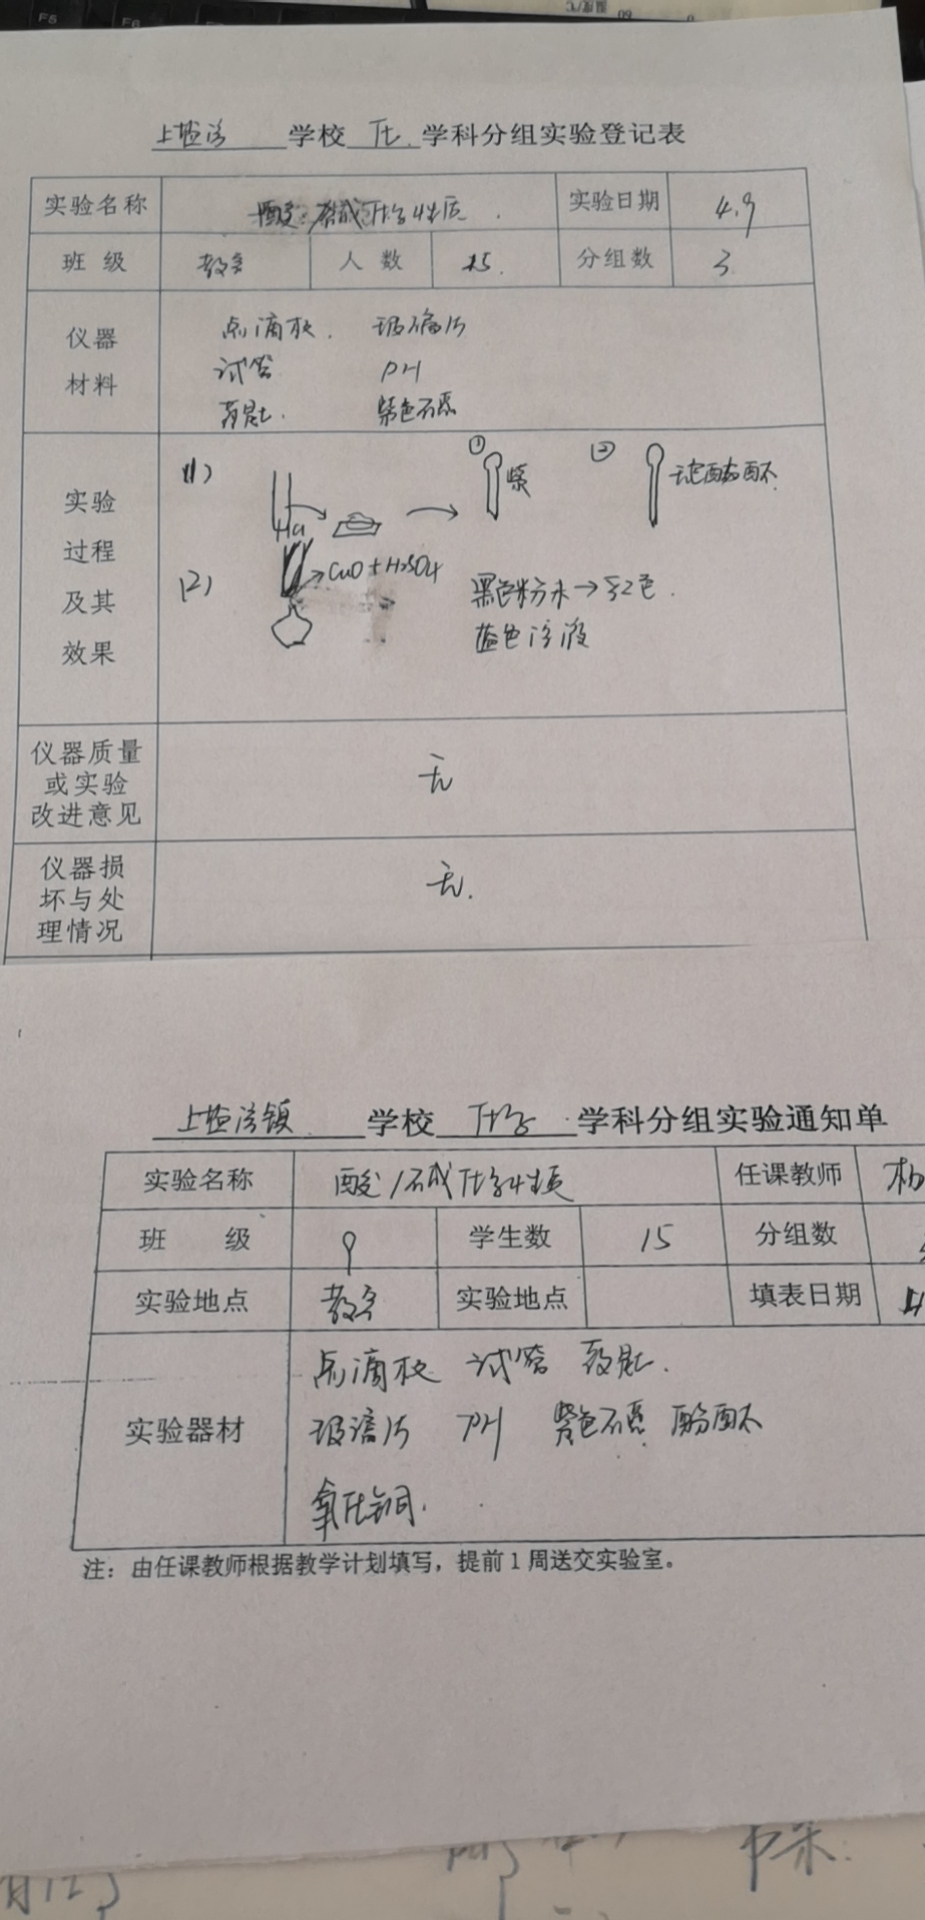 学校 化 学科分组实验登记表
实验名称 酸、碱化学性质 实验日期 4.9
班级 教室 人数 15. 分组数 3
仪器材料 点滴板. 玻璃片
试管 PH
药匙. 紫色石蕊
实验过程及其效果 (1) ① 紫 ② 无色酚酞
HCl
(2) CuO+H2SO4 黑色粉末→红色.
蓝色溶液
仪器质量或实验改进意见 无
仪器损坏与处理情况 无.
学校 化学 学科分组实验通知单
实验名称 酸、碱化学性质 任课教师 杨
班 级 9 学生数 15 分组数
实验地点 教室 实验地点 填表日期 4
实验器材 点滴板 试管 药匙.
玻璃片 PH 紫色石蕊 酚酞
氧化铜.
注：由任课教师根据教学计划填写，提前1周送交实验室。